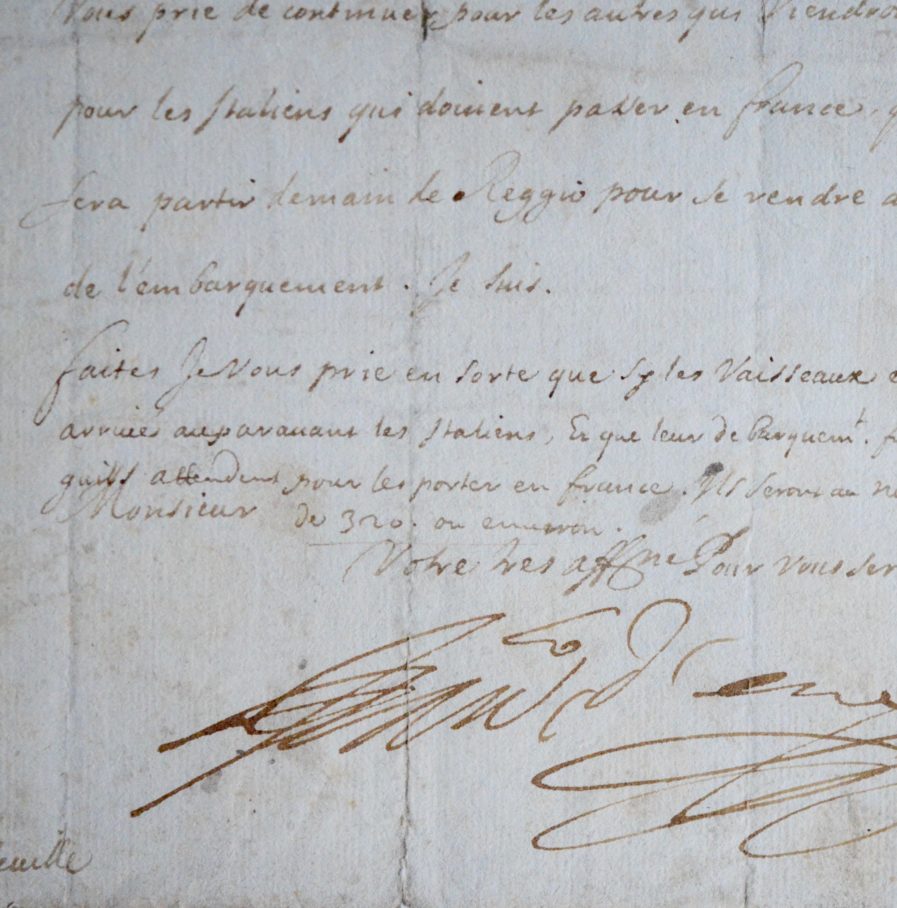 Vous prie de continuer pour les autres qui viendro
pour les Italiens qui doivent passer en france, q
sera partir demain de Reggio pour se rendre a
de l'embarquement. Je suis.
faites Je Vous prie en sorte que sy les Vaisseaux e
arriué auparauant les Italiens, Et que leur debarquemt. f
quils attendent pour les porter en france. Ils seront au no
Monsieur de 320. ou enuiron.
Votre tres affné Pour vous ser